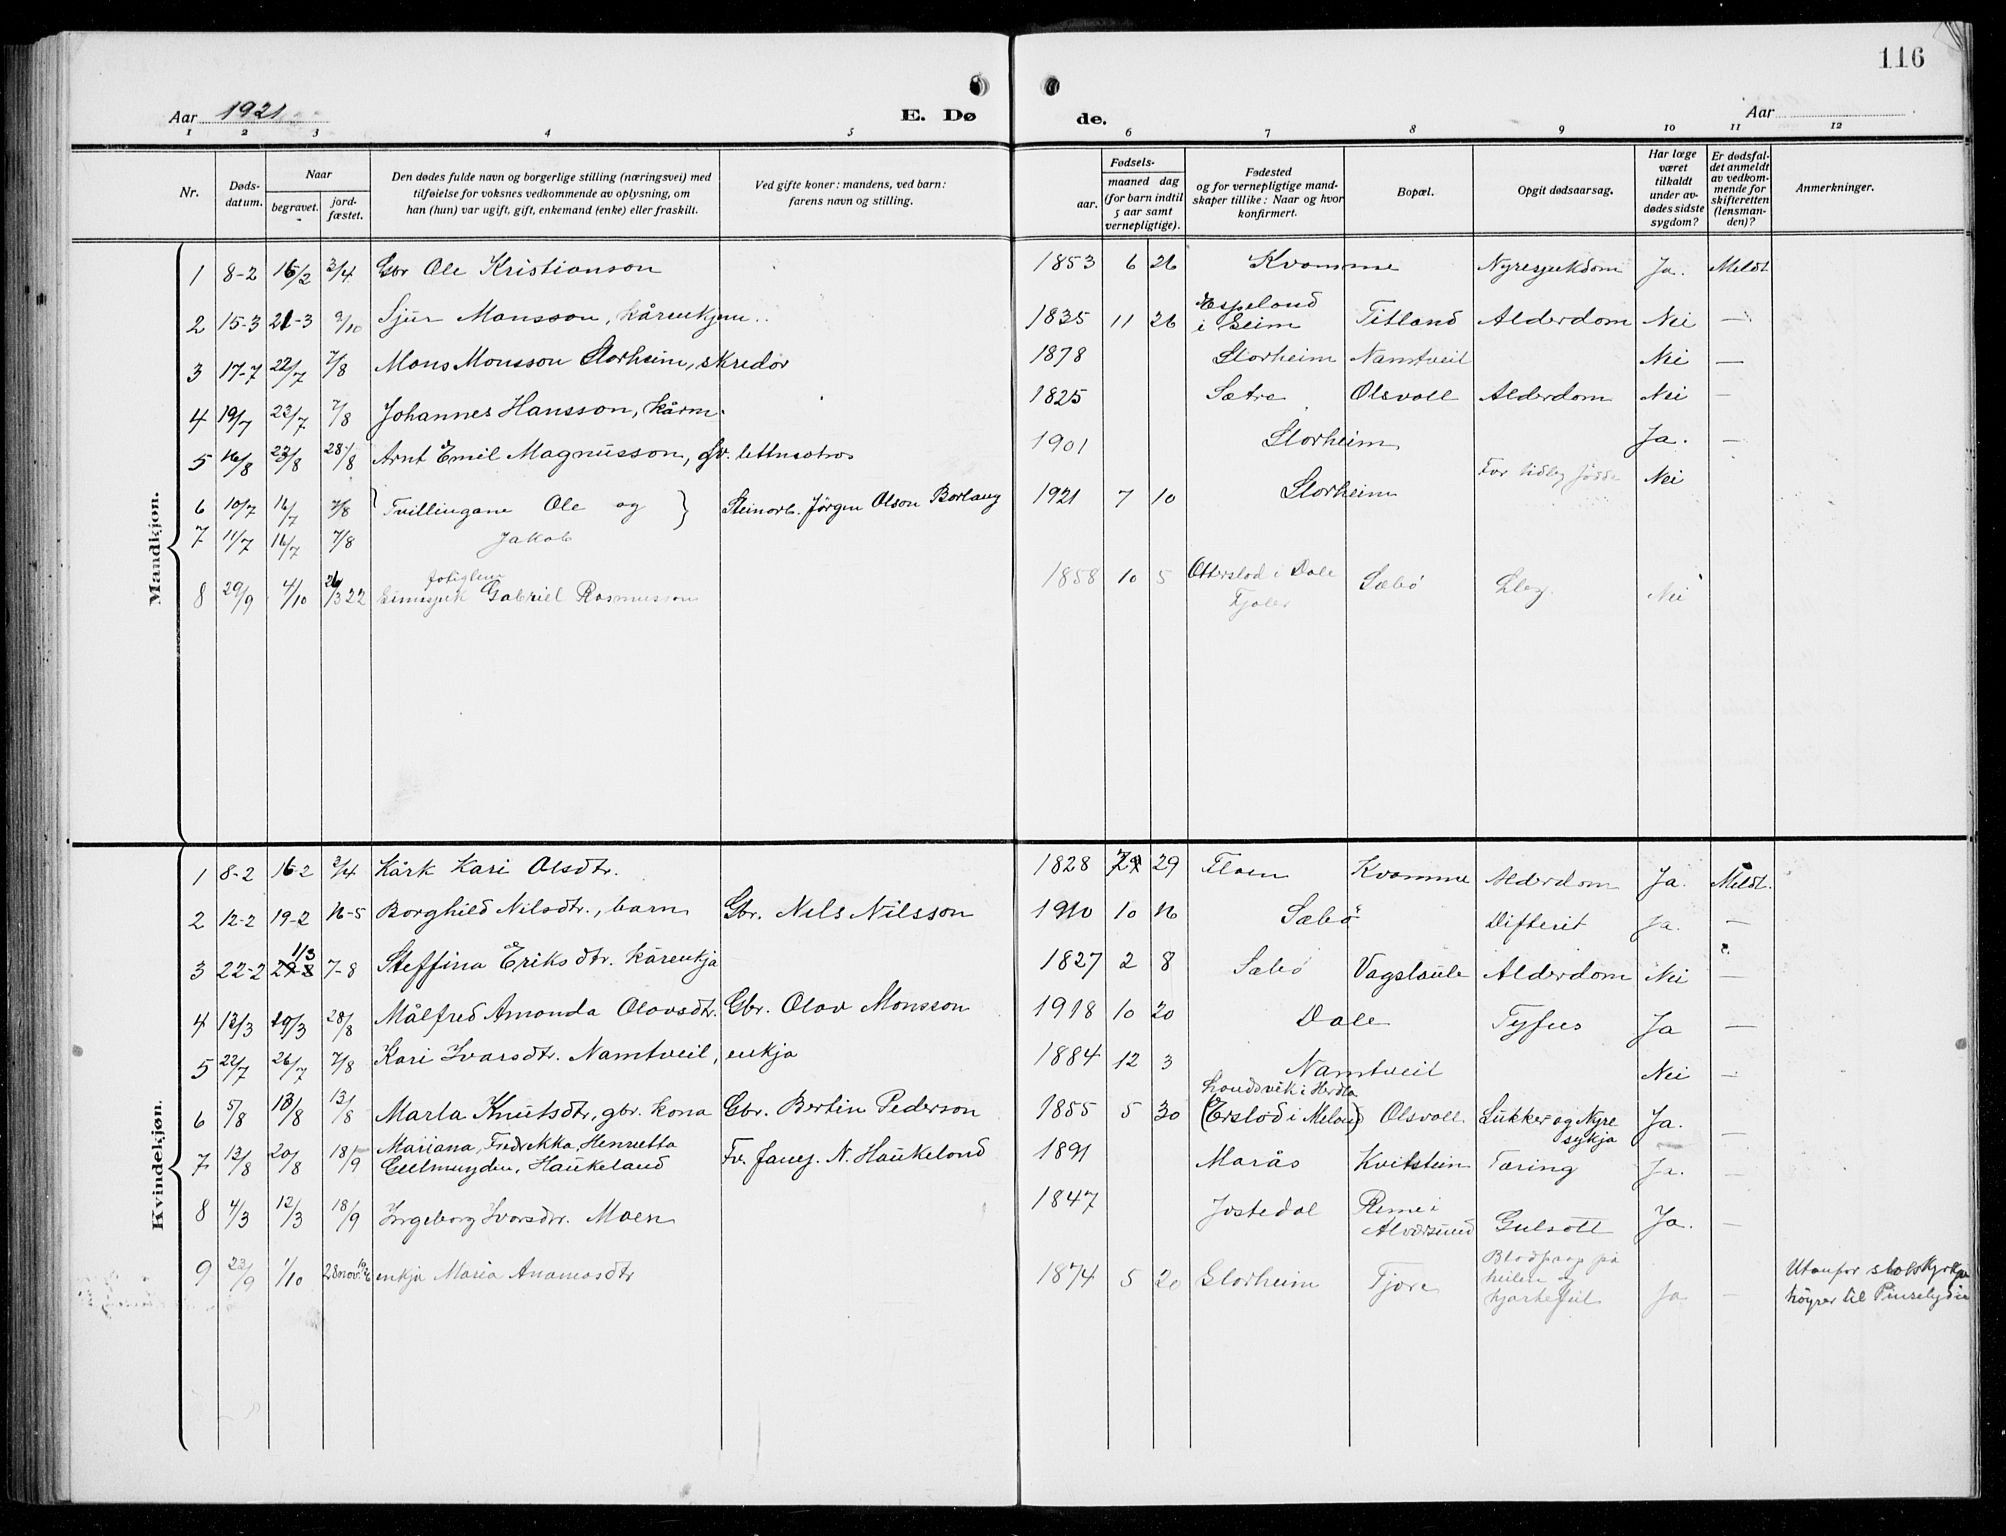 116
Aar 1921
E. Dø
de.
Aar
1 2 3 4 5 6 7 8 9 10 11 12
Nr.
Døds-
datum.
Naar
begravet.
jord-
fæstet.
Den dødes fulde navn og borgerlige stilling (næringsvei) med
tilføielse for voksnes vedkommende av oplysning, om
han (hun) var ugift, gift, enkemand (enke) eller fraskilt.
Ved gifte koner: mandens, ved barn:
farens navn og stilling.
Fødsels-
aar.
maaned dag
(for barn indtil
5 aar samt
vernepligtige).
Fødested
og for vernepligtige mand-
skaper tillike: Naar og hvor
konfirmert.
Bopæl.
Opgit dødsaarsag.
Har læge
været
tilkaldt
under av-
dødes sidste
sygdom?
Er dødsfal-
det anmeldt
av vedkom-
mende for
skifteretten
(lensman-
den)?
Anmerkninger.
Mandkjøn.
1 8-2 16/2 3/4 Gbr Ole Kristianson 1853 6 26 Kvamme Nyresjukdom Ja. Meldt
2 15-3 21-3 2/10 Sjur Monsson, kårenkjem. 1835 11 26 Espeland i Seim Titland Alderdom Nei —
3 17-7 22/7 7/8 Mons Monsson Storheim, skredar 1878 Storheim Namtveit Nei —
4 19/7 23/7 7/8 Johannes Hansson, kårm. 1825 Sætre Olsvoll Alderdom Nei —
5 16/8 23/8 28/8 Arnt Emil Magnusson, gv. 1901 Storheim Ja. —
6 10/7 16/7 7/8 Tvillingane Ole og Steinarb. Jörgen Olson Borlaug 1921 7 10 Storheim For tidleg födde Nei
7 11/7 16/7 7/8 Jakob
8 29/9 4/10 26/3 22 Gabriel Rasmusson 1858 10 5 Otterstad i Dale Fjaler Sæbö Slag. Nei
Kvindekjøn.
1 8-2 16-2 3/4 Kårk Kari Olsdtr. 1828 29 Floen Kvamme Alderdom Ja. Meldt.
2 12-2 19-2 16-5 Borghild Nilsdtr., barn Gbr. Nils Nilsson 1910 10 16 Sæbö Difterit Ja. —
3 22-2 1/3 7-8 Steffina Eriksdtr. kårenkja 1827 2 8 Sæbö Vagstaule Alderdom Nei —
4 13/3 20/3 28/8 Målfred Amanda Olavsdtr. Gbr. Olav Monsson 1918 10 20 Dale Tyfus Ja —
5 22/7 26/7 7/8 Kari Ivarsdtr. Namtveit, enkja 1884 12 3 Namtveit Nei —
6 5/8 13/8 13/8 Marta Knutsdtr, gbr. kona Gbr. Bertin Pederson 1855 5 30 Landsvik i Herdla (Erstad i Meland) Olsvoll. Sukker og Nyre sykja Ja. —
7 13/8 20/8 18/9 Mariana, Fredrikka, Henrietta Geelmuyden, Haukeland Fv. N. Haukeland 1891 Marås Kvitstein Tæring Ja. —
8 4/3 12/3 18/9 Ingeborg Ivarsdtr. Moen 1847 Jostedal Reme i Alversund Gulsott Ja. —
9 23/9 1/10 28 nov. enkja Maria Ananiasdtr 1874 5 20 Storheim Fjøre Blodpropp på heilen og hjartefeil Ja — Utanfor statskyrkja höyrer til Pinselydn